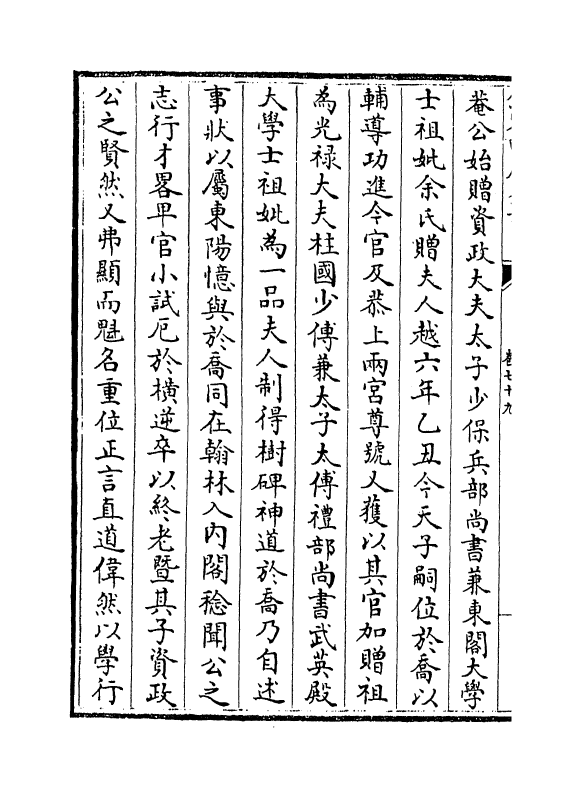 菴公始贈資政大夫太子少保兵部尚書兼東閣大學
士祖妣余氏贈夫人越六年乙丑今天子嗣位於喬以
輔導功進今官及恭上兩宮尊號又獲以其官加贈祖
為光禄大夫柱國少傅兼太子太傅禮部尚書武英殿
大學士祖妣為一品夫人制得樹碑神道於喬乃自述
事狀以屬東陽憶與於喬同在翰林入内閣稔聞公之
志行才畧卑官小試厄於横逆卒以終老暨其子資政
公之賢然又弗顯而魁名重位正言直道偉然以學行
卷七十九